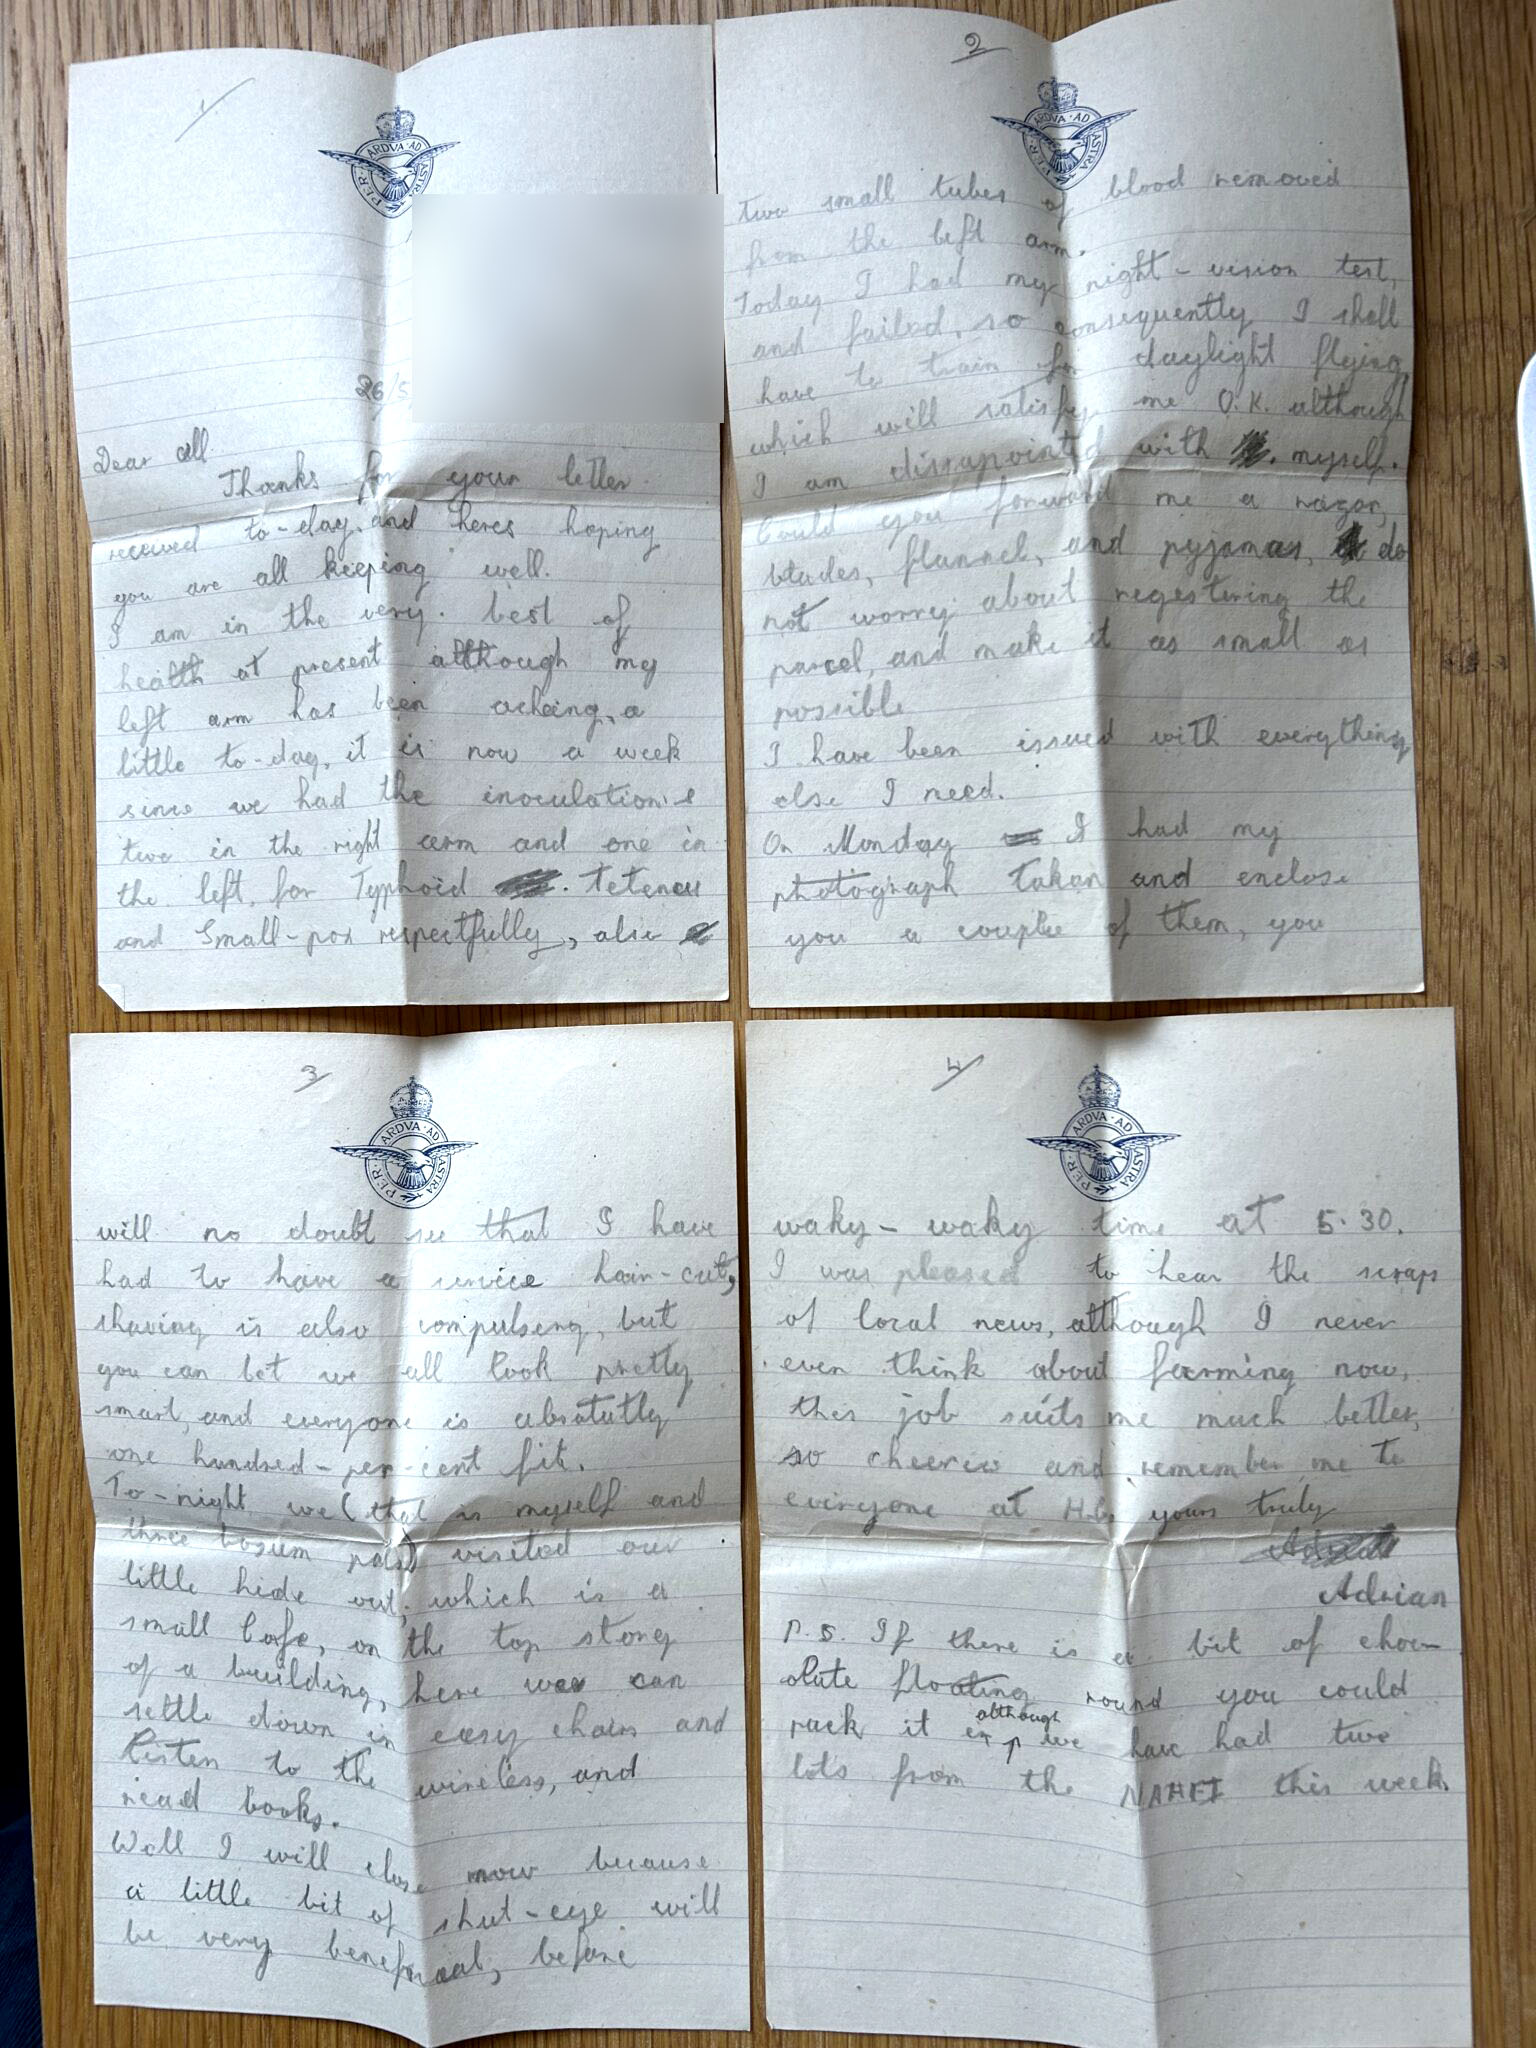 1/
PER ARDVA AD ASTRA
26/5
Dear all
Thanks for your letter
received to-day, and heres hoping
you are all keeping well.
I am in the very. best of
health at present although my
left arm has been acheing, a
little to-day, it is now a week
since we had the inoculation's
two in the right arm and one in
the left, for Typhoid . Tetenus
and Small-pox respectfully, also
2/
PER ARDVA AD ASTRA
two small tubes of blood removed
from the left arm.
Today I had my night-vision test,
and failed, so consequently I shall
have to train for daylight flying
which will satisfy me O.K. although
I am dissapointed with myself.
Could you forward me a razor,
blades, flannel, and pyjamas, do
not worry about regestering the
parcel, and make it as small as
possible
I have been issued with everything
else I need.
On Monday I had my
photograph taken and enclose
you a couple of them, you
3/
PER ARDVA AD ASTRA
will no doubt see that I have
had to have a service hair-cut,
shaving is also compulsory, but
you can bet we all look pretty
smart, and everyone is absolutly
one hundred-per-cent fit.
To-night we (that is myself and
three bosum pals) visited our
little hide out, which is a
small Cafe, on the top story
of a building, here we can
settle down in easy chairs and
listen to the wireless, and
read books.
Well I will close now because
a little bit of shut-eye will
be very beneficial, before
4/
PER ARDVA AD ASTRA
waky-waky time at 5.30.
I was pleased to hear the scraps
of local news, although I never
even think about farming now,
this job suits me much better,
so cheerio and remember me to
everyone at yours truly
Adrian
P.S. If there is a bit of choc-
olate floating round you could
pack it although we have had two
lots from the NAAFI this week.